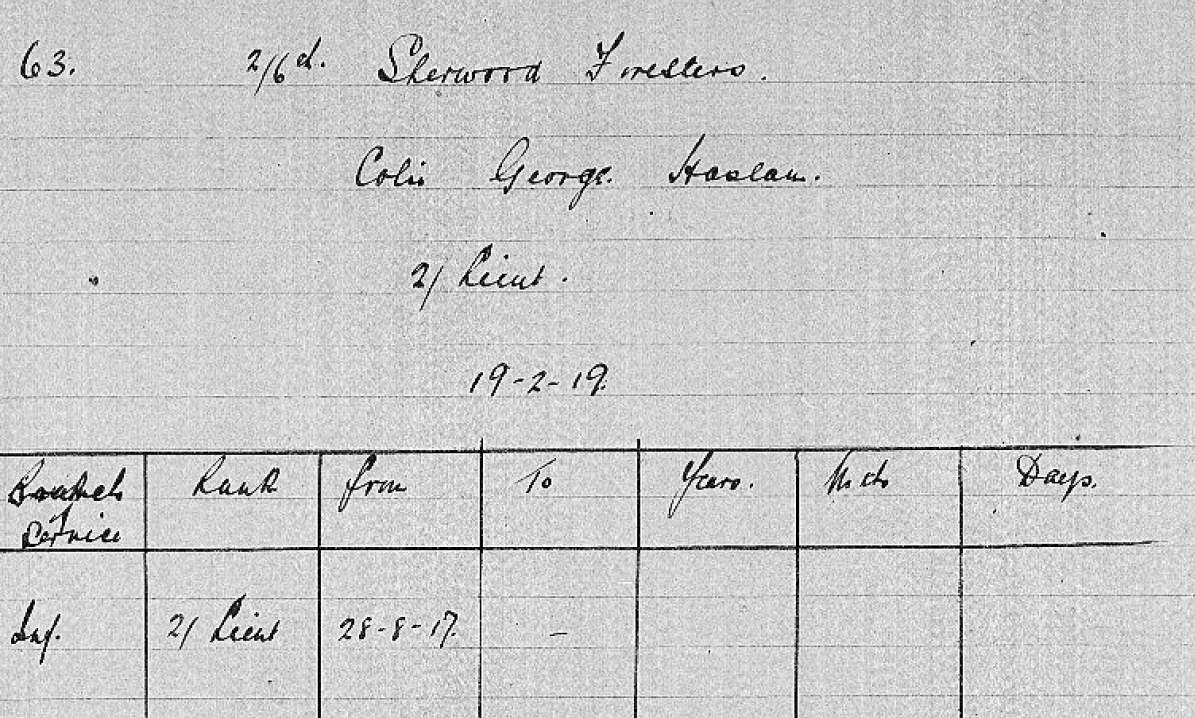 63. 2/6th. Sherwood Foresters.
Colin George Haslam.
2/ Lieut.
19-2-19.
Branch of Service Rank from To Years. Mths Days.
Inf. 2/ Lieut 28-8-17. -